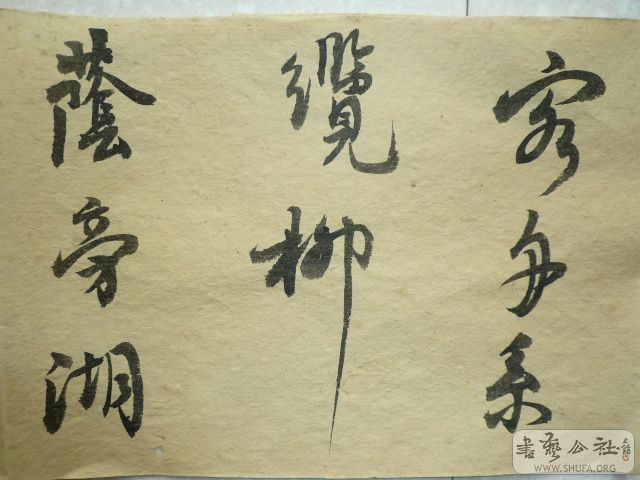 客舟系
纜柳
蔭旁湖
書藝公社
WWW.SHUFA.ORG